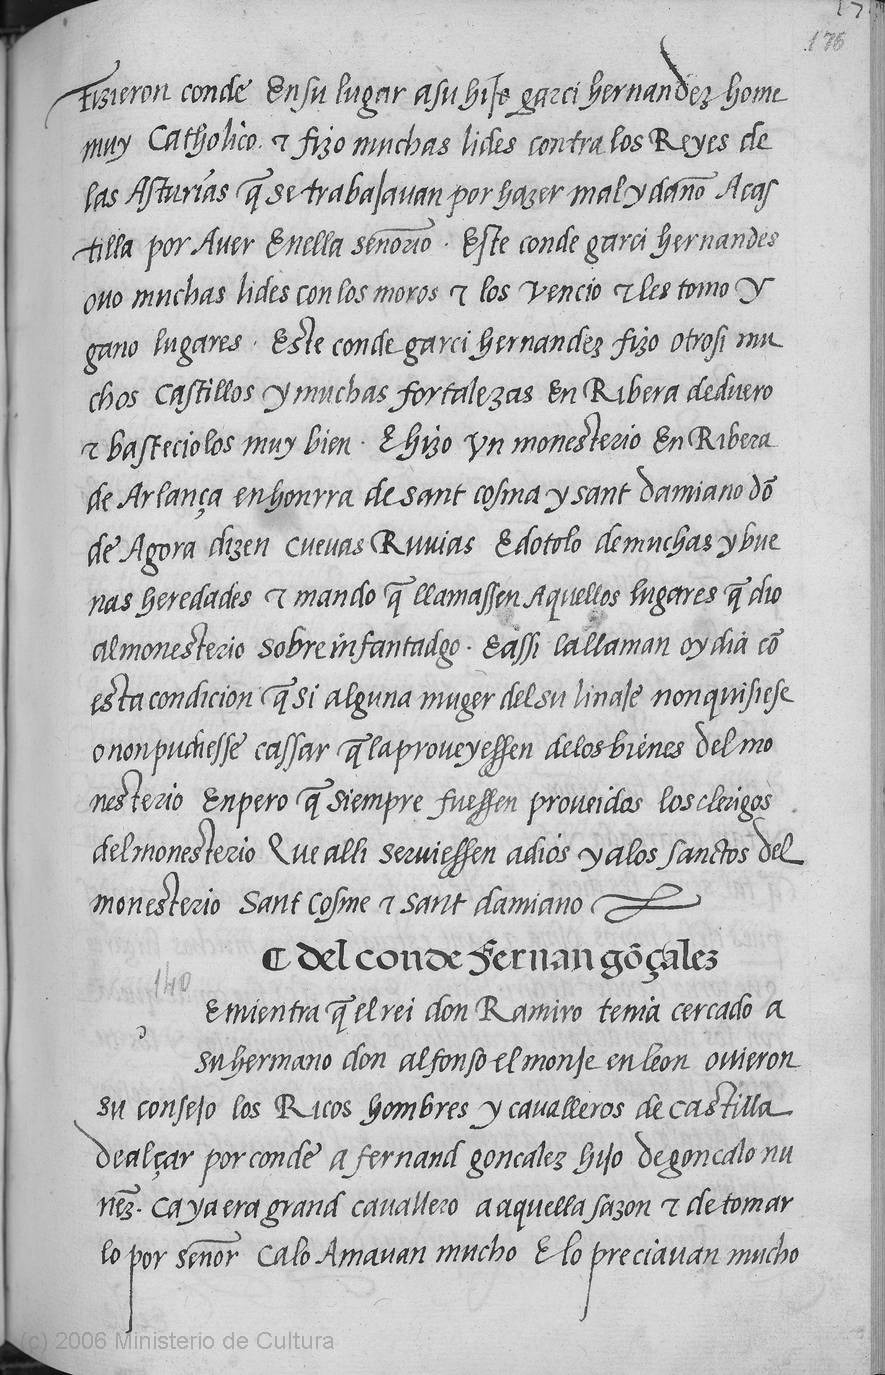 175
fizieron conde En su lugar a su hijo garci hernandez home
muy Catholico. ⁊ fizo muchas lides contra los Reyes de
las Asturias q̃ se trabajauan por hazer mal y daño A cas
tilla por Auer En ella señorio · Este conde garci hernandes
ouo muchas lides con los moros ⁊ los vencio ⁊ les tomo y
gano lugares · Este conde garci hernandez fizo otrosi mu
chos Castillos y muchas fortalezas En Ribera de duero
⁊ basteciolos muy bien · E hizo vn monesterio En Ribera
de Arlança en honrra de sant cosma y sant damiano dõ
de Agora dizen cueuas Ruuias E dotolo de muchas y bue
nas heredades ⁊ mando q̃ llamassen Aquellos lugares q̃ dio
al monesterio sobre infantadgo · E assi la llaman oy dia cõ
esta condicion q̃ si alguna muger del su linaje non quisiese
o non pudiesse cassar q̃ la proueyessen de los bienes del mo
nesterio Enpero q̃ siempre fuessen proueidos los clerigos
del monesterio Que alli seruiessen a dios y a los sanctos del
monesterio Sant Cosme ⁊ sant damiano
C del conde Fernan gõçalez
140
E mientra q̃ el rei don Ramiro tenia cercado a
su hermano don alfonso el monje en leon ouieron
su consejo los Ricos hombres y caualleros de castilla
de alçar por conde a fernand goncalez hijo de goncalo nu
ñez · Ca ya era grand cauallero a aquella sazon ⁊ de tomar
lo por señor Ca lo Amauan mucho E lo preciauan mucho
(c) 2006 Ministerio de Cultura